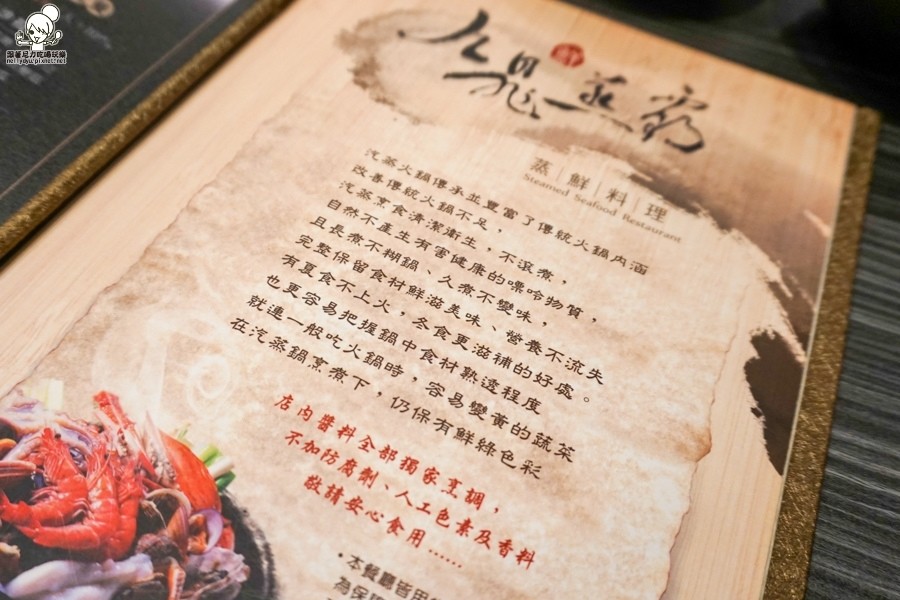 跟著尼力吃喝玩樂
nellydyu.pixnet.net
鮮
蒸霸
蒸|鮮|料|理
Steamed Seafood Restaurant
汽蒸火鍋傳承並豐富了傳統火鍋內涵
改善傳統火鍋不足，
汽蒸烹食清潔衛生，不滾煮，
自然不產生有害健康的嘌呤物質，
且長煮不糊鍋、久煮不變味，
完整保留食材鮮滋美味、營養不流失
有夏食不上火，冬食更滋補的好處。
也更容易把握鍋中食材熟透程度
就連一般吃火鍋時，容易變黃的蔬菜
在汽蒸鍋烹煮下，仍保有鮮綠色彩
店內醬料全部獨家烹調，
不加防腐劑、人工色素及香料
敬請安心食用……
•本餐廳皆用
為保障